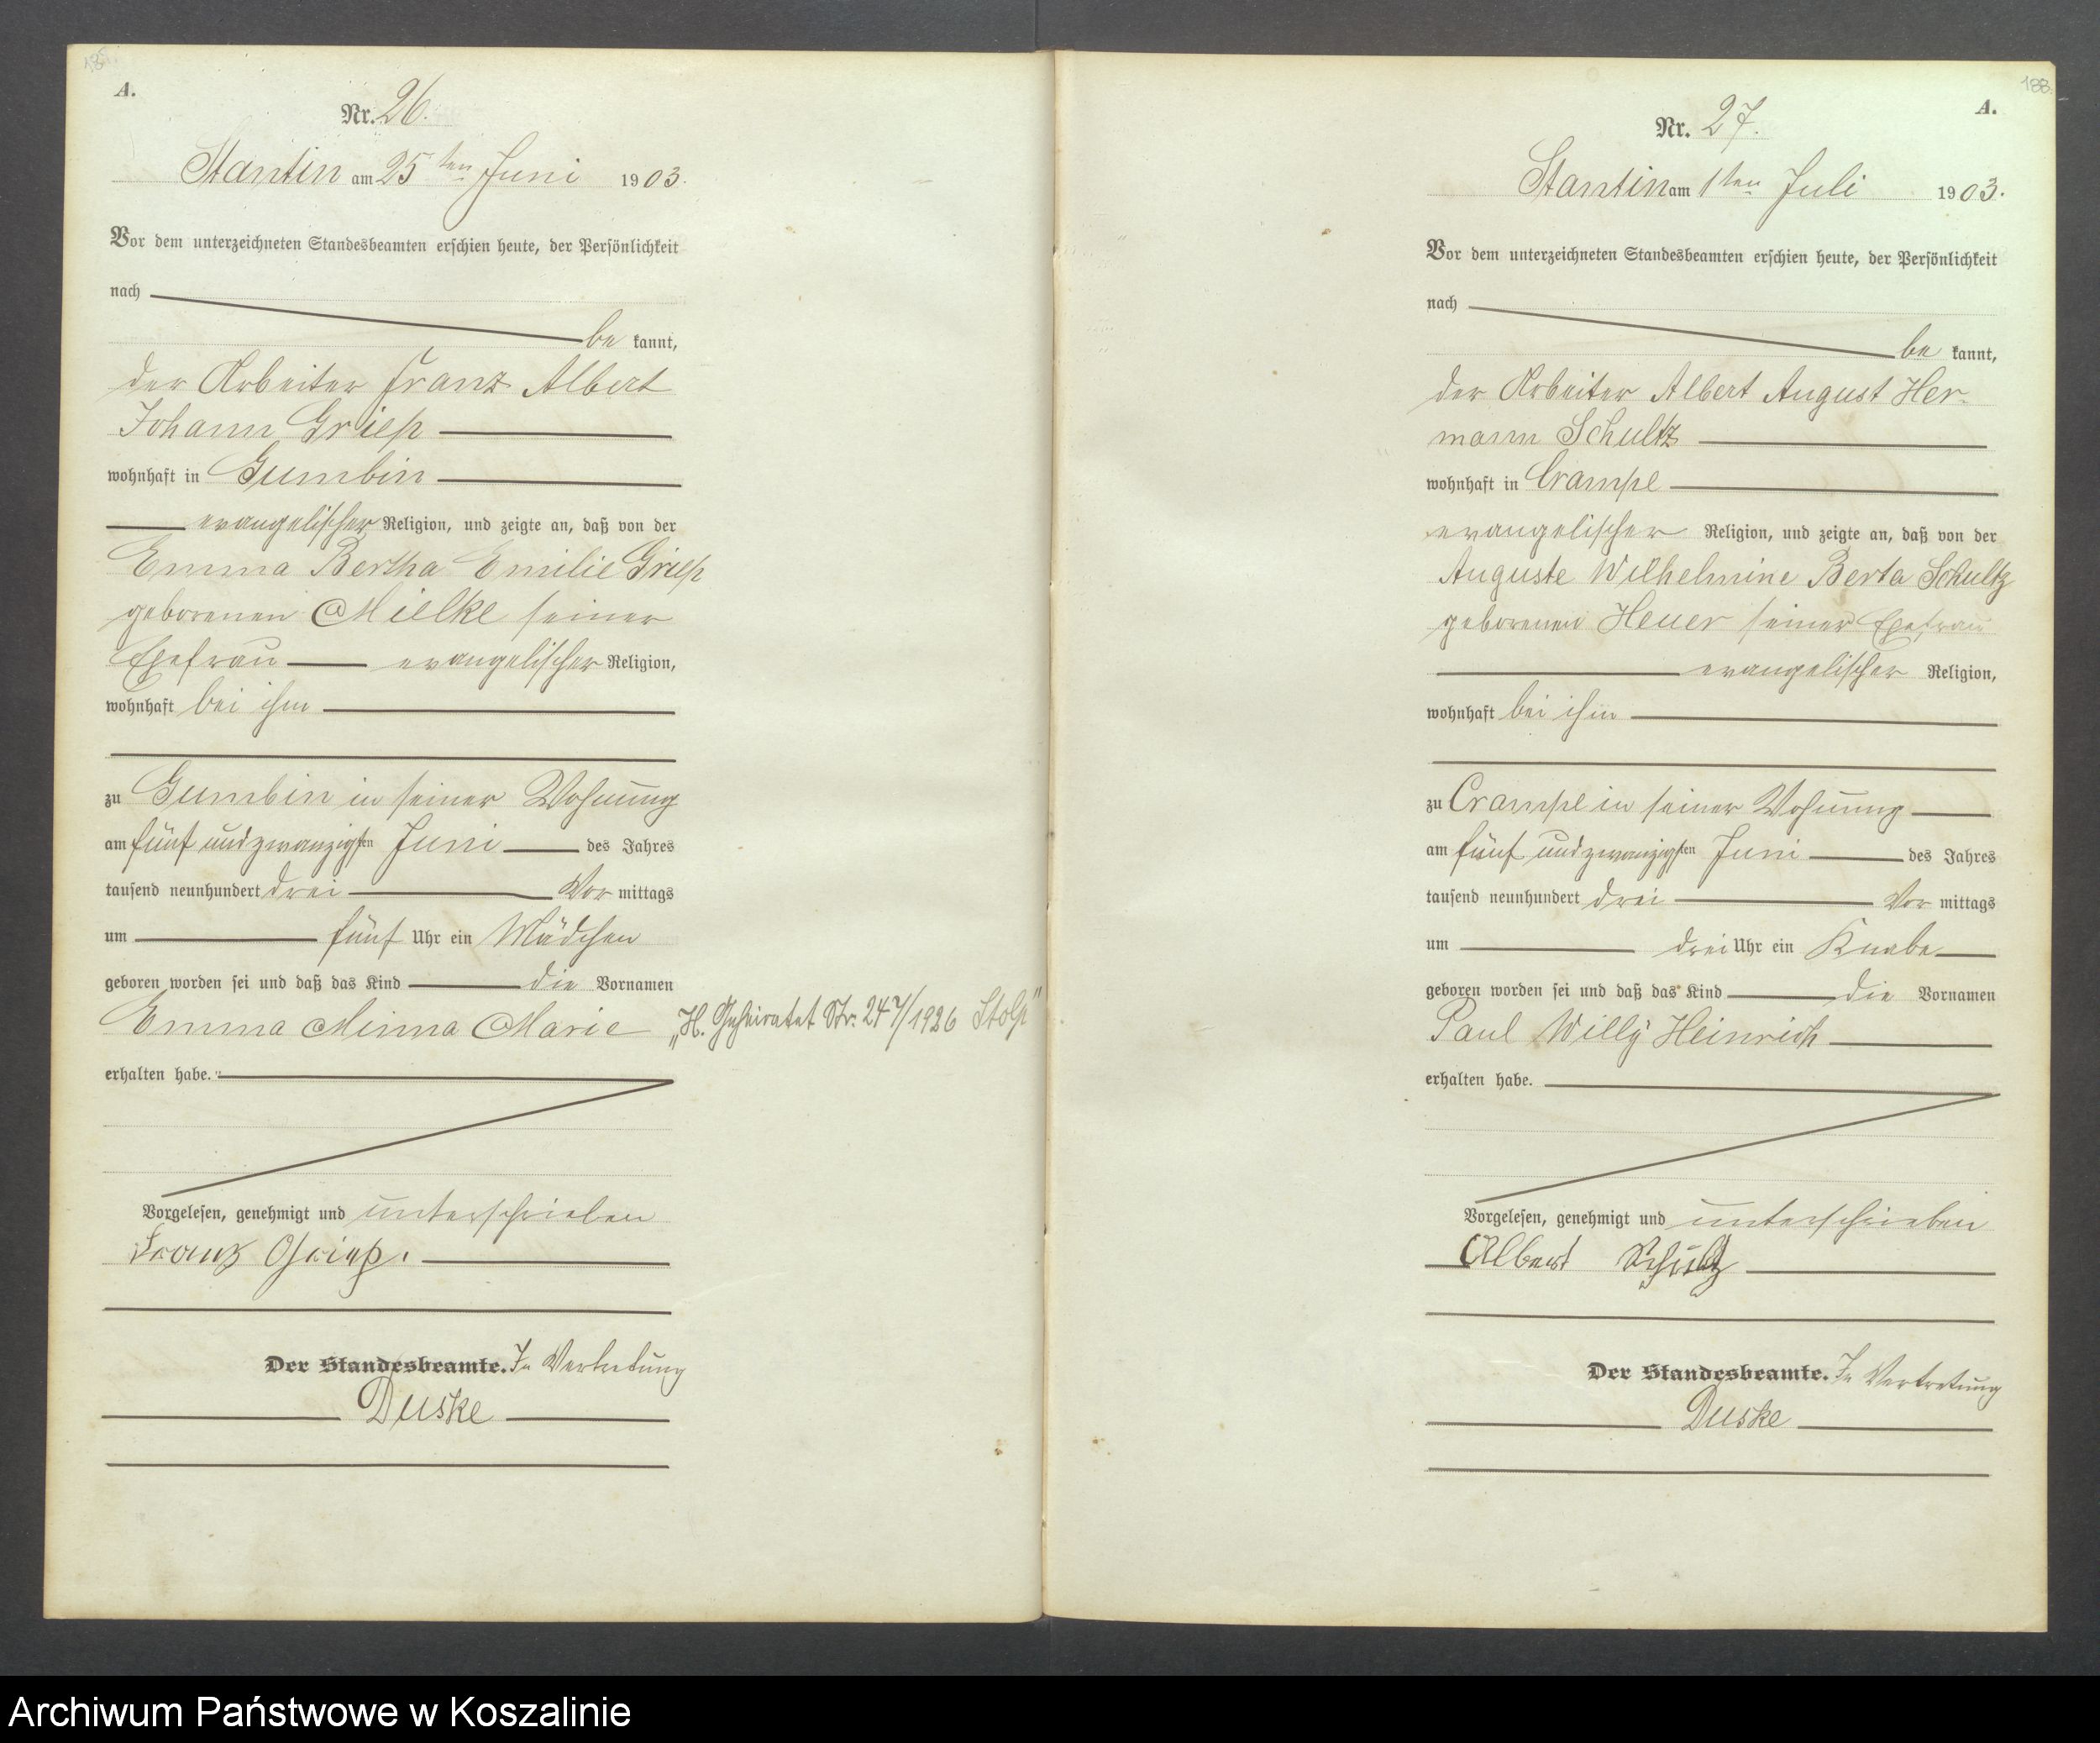 A.
Nr. 26.
Stantin am 25ten Juni 1903.
Vor dem unterzeichneten Standesbeamten erschien heute, der Persönlichkeit
nach
be kannt,
der Arbeiter Franz Albert
Johann Griep
wohnhaft in Gumbin
evangelischer Religion, und zeigte an, daß von der
Emma Bertha Emilie Griep
geborenen Mielke seiner
Ehefrau evangelischer Religion,
wohnhaft bei ihm
zu Gumbin in seiner Wohnung
am fünf und zwanzigsten Juni des Jahres
tausend neunhundert drei Vor mittags
um fünf Uhr ein Mädchen
geboren worden sei und daß das Kind die Vornamen
Emma Minna Marie
„H. Geheiratet Nr. 247/1926 Stolp"
erhalten habe.
Vorgelesen, genehmigt und unterschrieben
Franz Griep.
Der Standesbeamte. In Vertretung
Duske
188.
A.
Nr. 27.
Stantin am 1ten Juli 1903.
Vor dem unterzeichneten Standesbeamten erschien heute, der Persönlichkeit
nach
be kannt,
der Arbeiter Albert August Her-
mann Schultz
wohnhaft in Crampe
evangelischer Religion, und zeigte an, daß von der
Auguste Wilhelmine Berta Schultz
geborenen Heuer seiner Ehefrau
evangelischer Religion,
wohnhaft bei ihm
zu Crampe in seiner Wohnung
am fünf und zwanzigsten Juni des Jahres
tausend neunhundert drei Vor mittags
um drei Uhr ein Knabe
geboren worden sei und daß das Kind die Vornamen
Paul Willy Heinrich
erhalten habe.
Vorgelesen, genehmigt und unterschrieben
Albert Schultz
Der Standesbeamte. In Vertretung
Duske
Archiwum Państwowe w Koszalinie